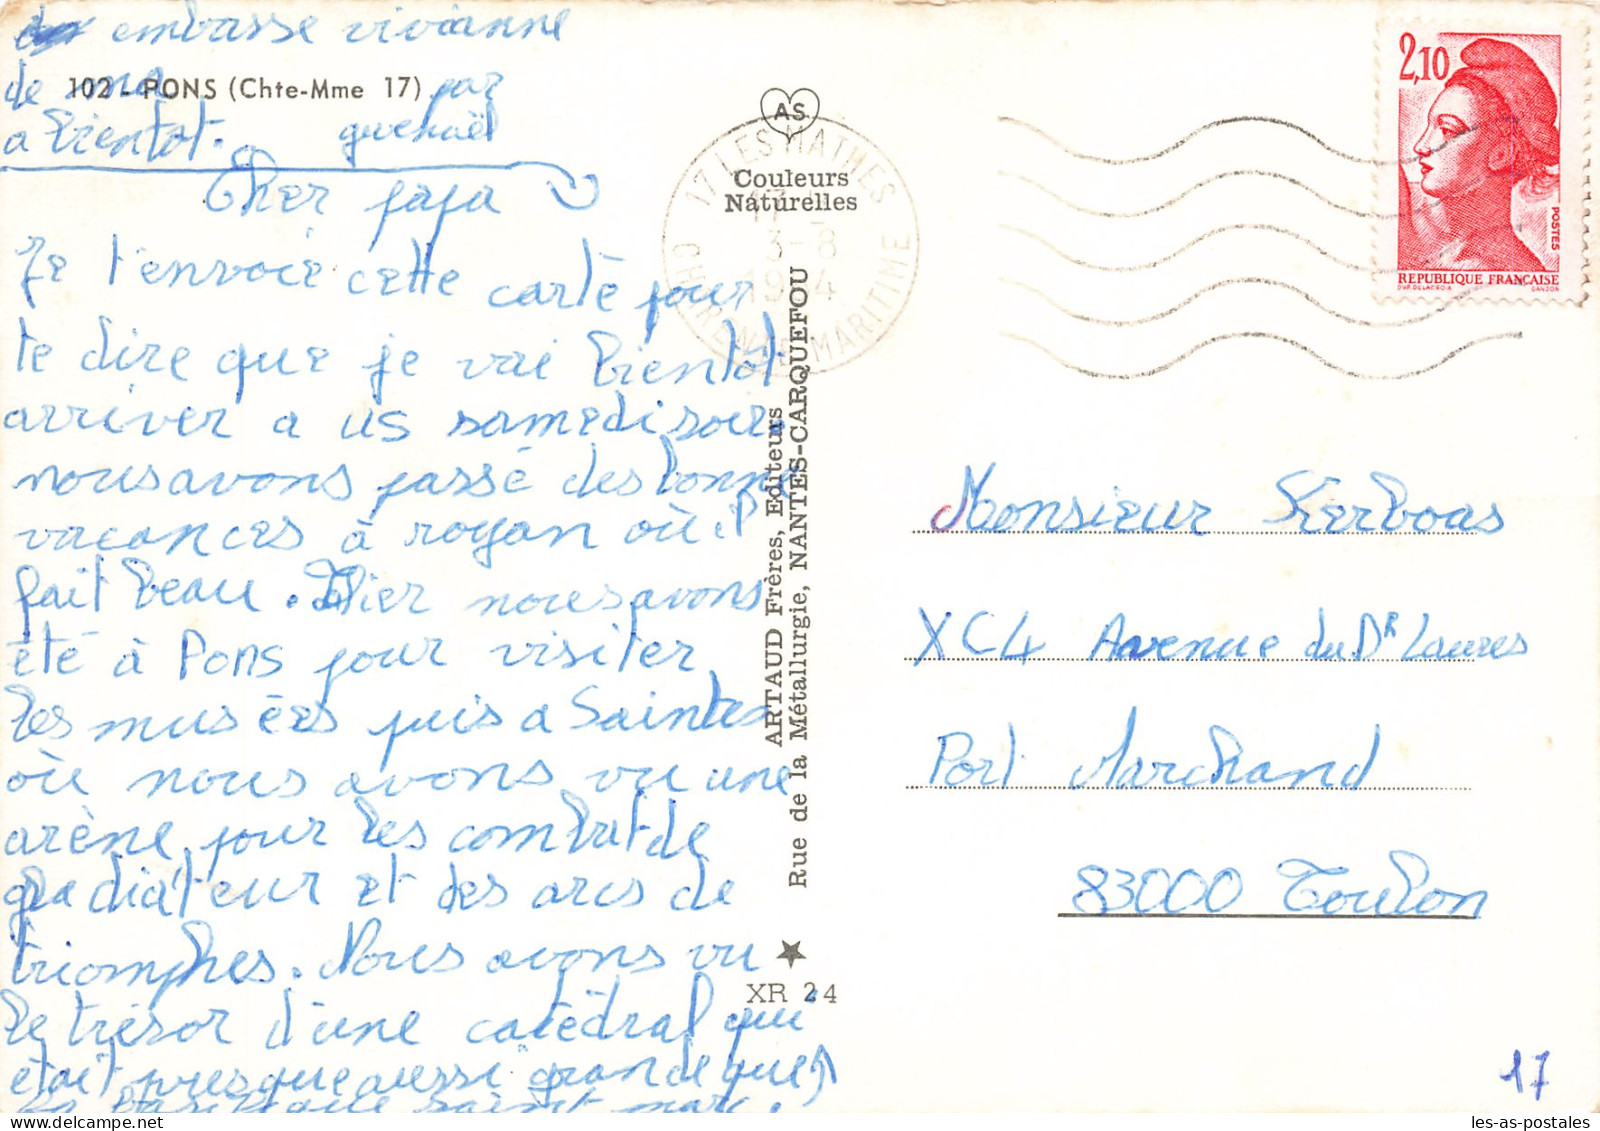 embrasse vivianne
102 - PONS (Chte-Mme 17)
de ma par
a bientot. gwenaël
Cher papa
Je t'envoie cette carte pour
te dire que je vai bientot
arriver a us samedi soir.
nous avons passé des bonne
vacances à royan où il
fait beau. Hier nous avons
été à Pons pour visiter
les musées puis a Saintes
où nous avons vu une
arène pour les combat de
gladiateur et des arcs de
triomphes. Nous avons vu
le trésor d'une catédral qui
était presque aussi grande que
la basilique saint marc.
AS
Couleurs
Naturelles
17 LES MATHES
3-8
CHARENTE MARITIME
ARTAUD Frères, Editeurs
Rue de la Métallurgie, NANTES-CARQUEFOU
XR 24
2,10
POSTES
REPUBLIQUE FRANÇAISE
D'AP. DELACROIX GANDON
Monsieur Kerboas
XC4 Avenue du Dr Laures
Port Marchand
83000 Toulon
17
les-as-postales